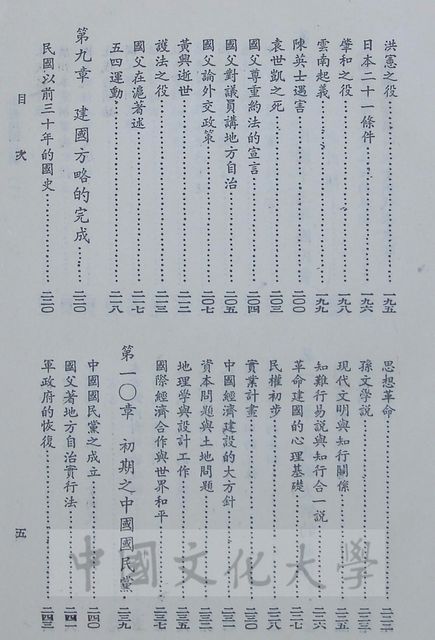 洪憲之役……一九五
日本二十一條件……一九六
肇和之役……一九八
雲南起義……一九九
陳英士遇害……二〇〇
袁世凱之死……二〇三
國父尊重約法的宣言……二〇四
國父對議員講地方自治……二〇五
國父論外交政策……二〇七
黃興逝世……二一二
護法之役……二一三
國父在滬著述……二一七
五四運動……二一八
第九章 建國方略的完成……二二〇
民國以前三十年的國史……二二〇
目次
思想革命……二二二
孫文學說……二二三
現代文明與知行關係……二二五
知難行易說與知行合一說……二二六
革命建國的心理基礎……二二七
民權初步……二二八
實業計畫……二三〇
中國經濟建設的大方針……二三一
資本問題與土地問題……二三二
地理學與設計工作……二三五
國際經濟合作與世界和平……二三七
第一〇章 初期之中國國民黨……二三九
中國國民黨之成立……二四〇
國父著地方自治實行法……二四一
軍政府的恢復……二四三
五
中國文化大學